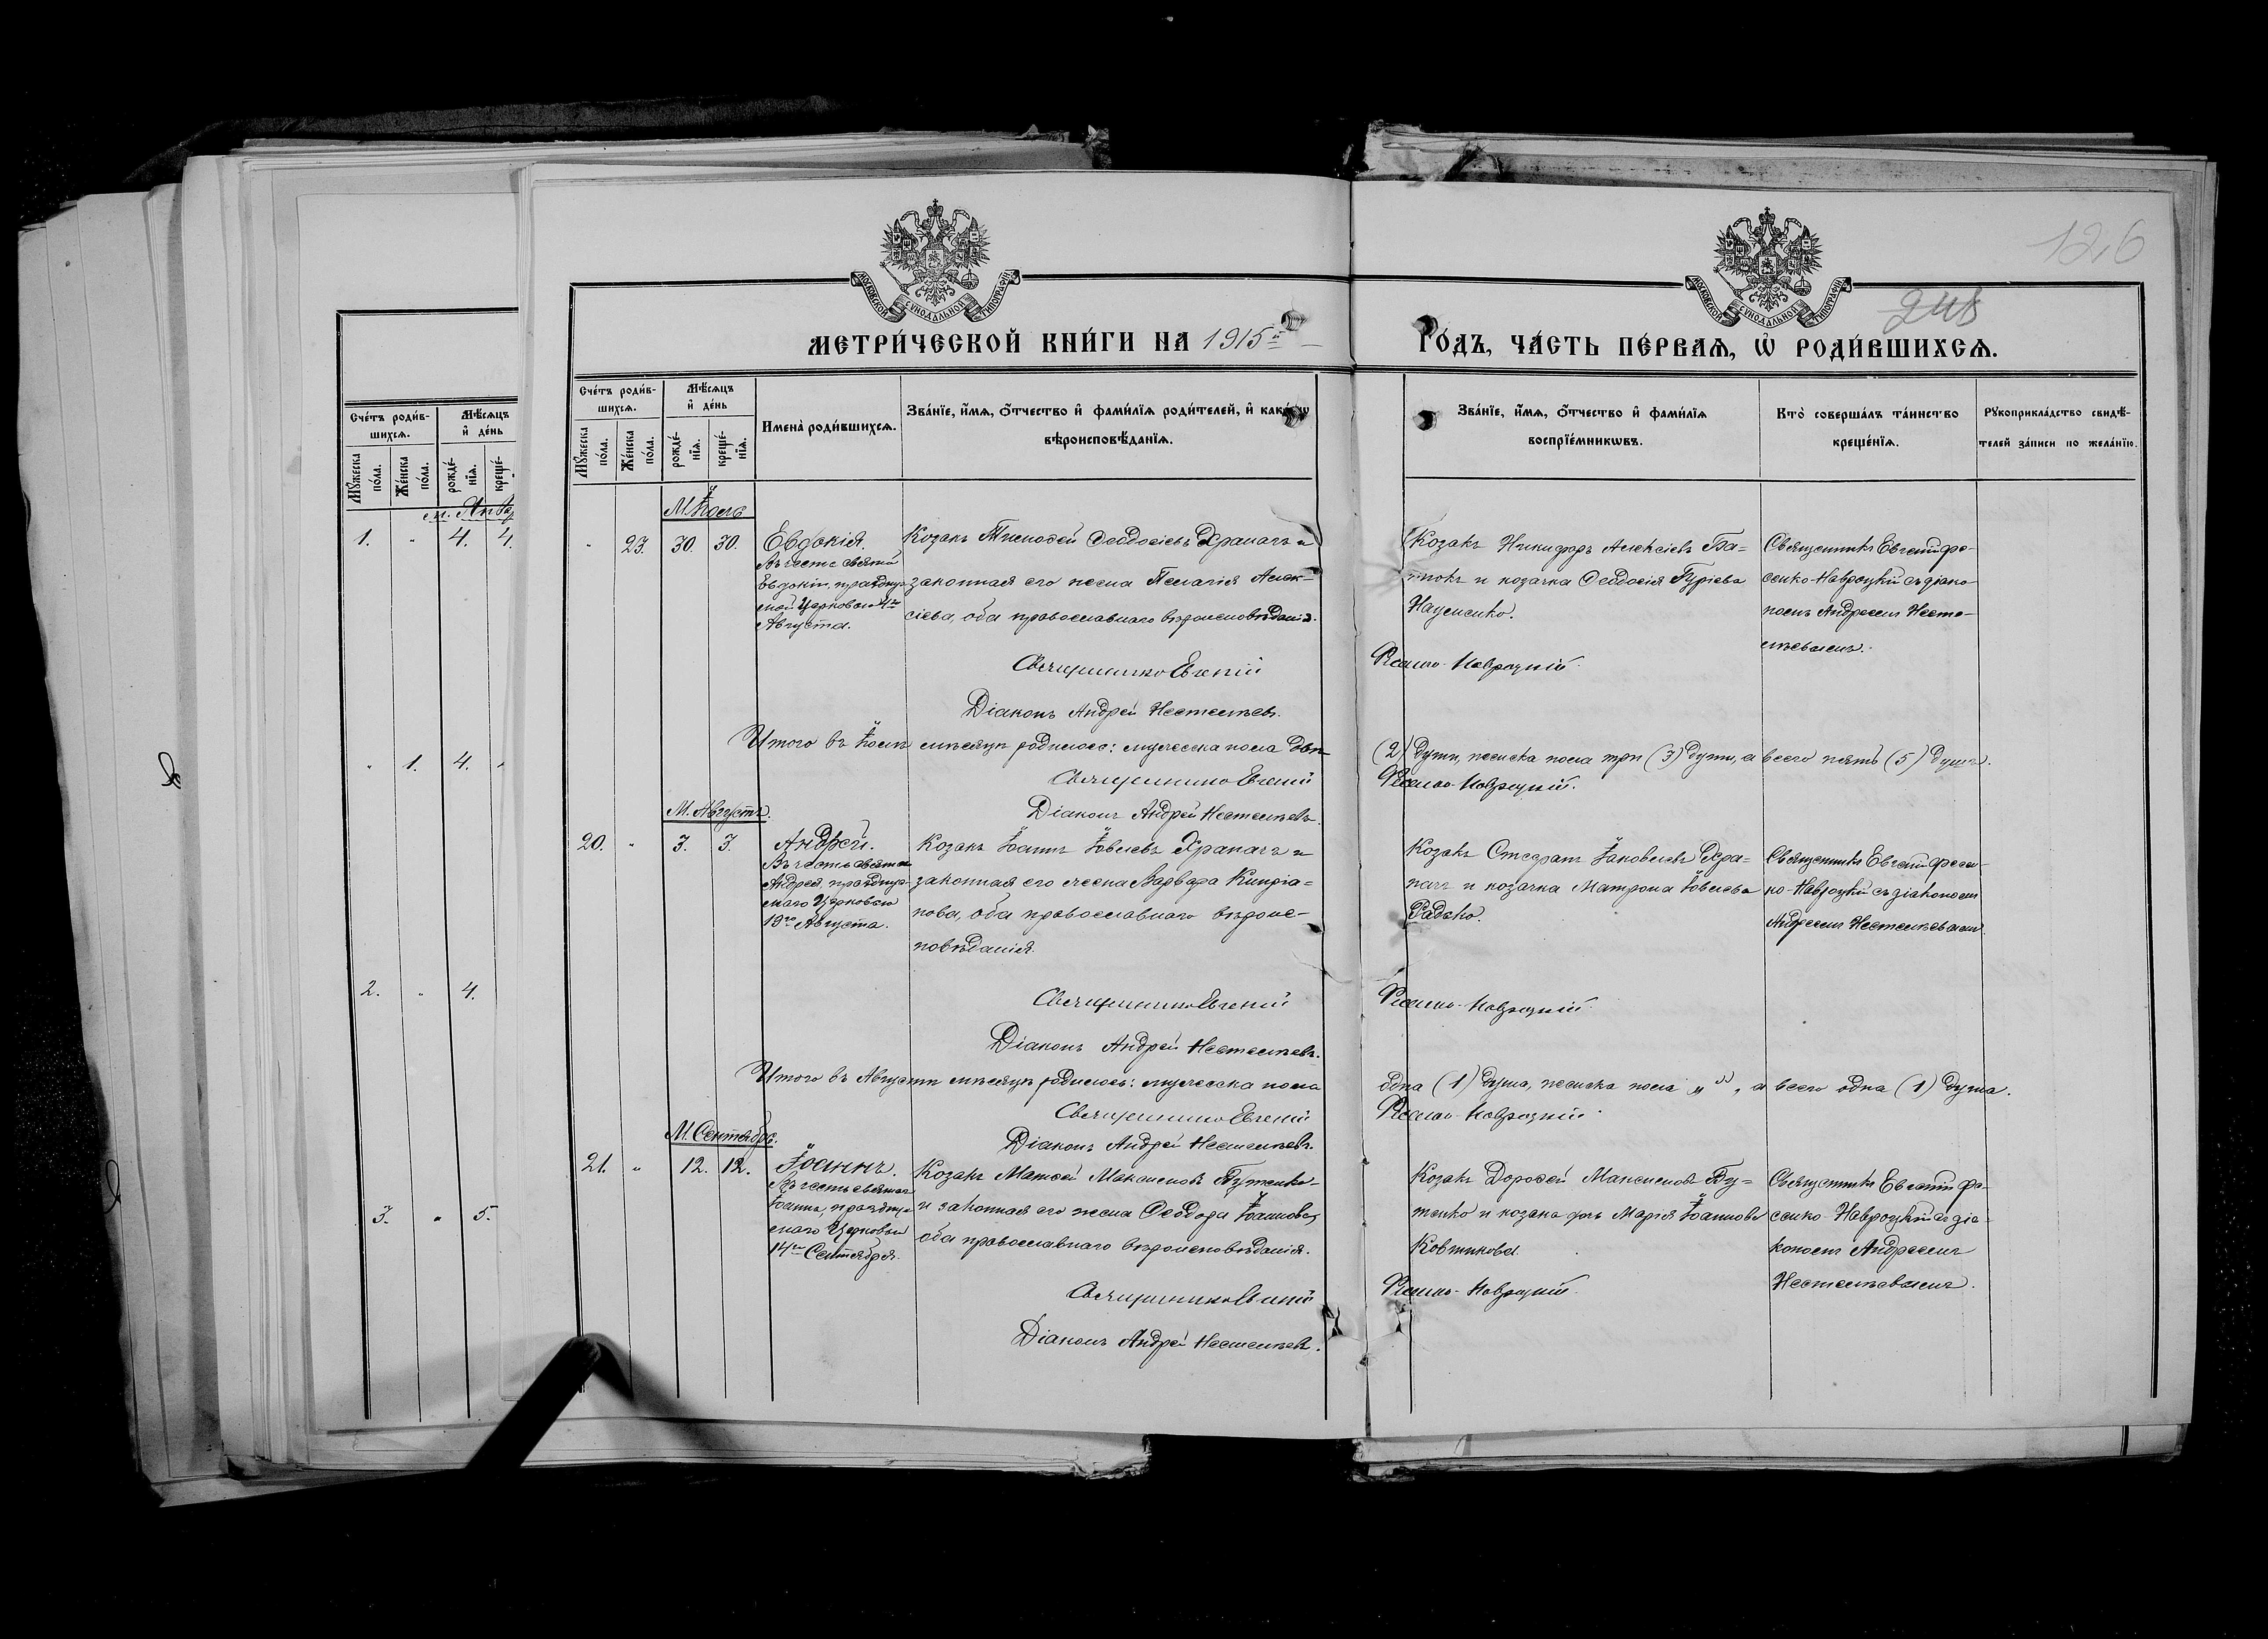 126
МОСКОВСКОЙ СѴНОДАЛЬНОЙ ТИПОГРАФІИ
МОСКОВСКОЙ СѴНОДАЛЬНОЙ ТИПОГРАФІИ
МЕТРИ́ЧЕСКОЙ КНИ́ГИ НА 1915й
ГО́ДЪ, ЧА́СТЬ ПЕ́РВАѦ, Ѡ҆ РОДИ́ВШИХСѦ.
Сче́тъ роди́в-
шихсѧ.
Мѣ́сѧцъ
и҆ де́нь
Мꙋ́жеска
по́ла.
Же́нска
по́ла.
рожде́-
нїѧ.
креще́-
м. Янва
1. " 4. 4.
" 1. 4. "
2. " 4.
3. " 5.
Сче́тъ роди́в-
шихсѧ.
Мѣ́сѧцъ
и҆ де́нь
Мꙋ́жеска
по́ла.
Же́нска
по́ла.
рожде́-
нїѧ.
креще́-
нїѧ.
Имена̀ роди́вшихсѧ.
Зва́нїе, и҆́мѧ, ѻ҆́тчество и҆ фами́лїѧ роди́телей, и҆ како́гѡ
вѣроисповѣ́данїѧ.
Зва́нїе, и҆́мѧ, ѻ҆́тчество и҆ фами́лїѧ
воспрїе́мникѡвъ.
Кто̀ соверша́лъ та́инство
креще́нїѧ.
Рꙋкоприкла́дство свидѣ́-
телей за́писи по жела́нїю.
М. Іюль
" 23. 30. 30.
Евдокія.
Въ честь святой
Евдокіи, празднуе-
мой Церковью 4го
Августа.
Козакъ Тимофей Феодосіевъ Храпачъ и
законная его жена Пелагія Алек-
сіева, оба православнаго вѣроисповѣданія.
Козакъ Никифоръ Алексіевъ Ба-
токъ и козачка Феодосія Гуріева
Науменко.
Священникъ Евгеній Фе-
сенко-Навроцкій съ діако-
номъ Андреемъ Несте-
Священникъ Евгеній
Фесенко-Навроцкій.
Діаконъ Андрей
Итого въ Іюлѣ мѣсяцѣ родилось: мужеска пола двѣ
(2) души, женска пола три (3) души, а всего пять (5) душъ.
Священникъ Евгеній
Фесенко-Навроцкій.
Діаконъ Андрей
М. Августъ.
20. " 3. 3.
Андрей.
Въ честь святаго
Андрея, праздну-
емаго Церковью
19го Августа.
Козакъ Іоаннъ Іовлевъ Храпачъ и
законная его жена Варвара Кипріа-
нова, оба православнаго вѣроис-
повѣданія.
Козакъ Стефанъ Іаковлевъ Хра-
пачъ и козачка Матрона Іовлева
Радько.
Священникъ Евгеній Фесен-
ко-Навроцкій съ діакономъ
Андреемъ
Священникъ Евгеній
Фесенко-Навроцкій.
Діаконъ Андрей
Итого въ Августѣ мѣсяцѣ родилось: мужеска пола
одна (1) душа, женска пола " ", а всего одна (1) душа.
Священникъ Евгеній
Фесенко-Навроцкій.
Діаконъ Андрей
М. Сентябрь.
21. " 12. 12.
Іоаннъ.
Въ честь святаго
Іоанна, праздну-
емаго Церковью
14го Сентября.
Козакъ Матѳей Максимовъ Бутенко
и законная его жена Феодора Іоаннова,
оба православнаго вѣроисповѣданія.
Козакъ Дорофей Максимовъ Бу-
тенко и козака дочь Марія Іоаннова
Ковтикова.
Священникъ Евгеній Фе-
сенко-Навроцкій съ діа-
кономъ Андреемъ
Священникъ Евгеній
Фесенко-Навроцкій.
Діаконъ Андрей